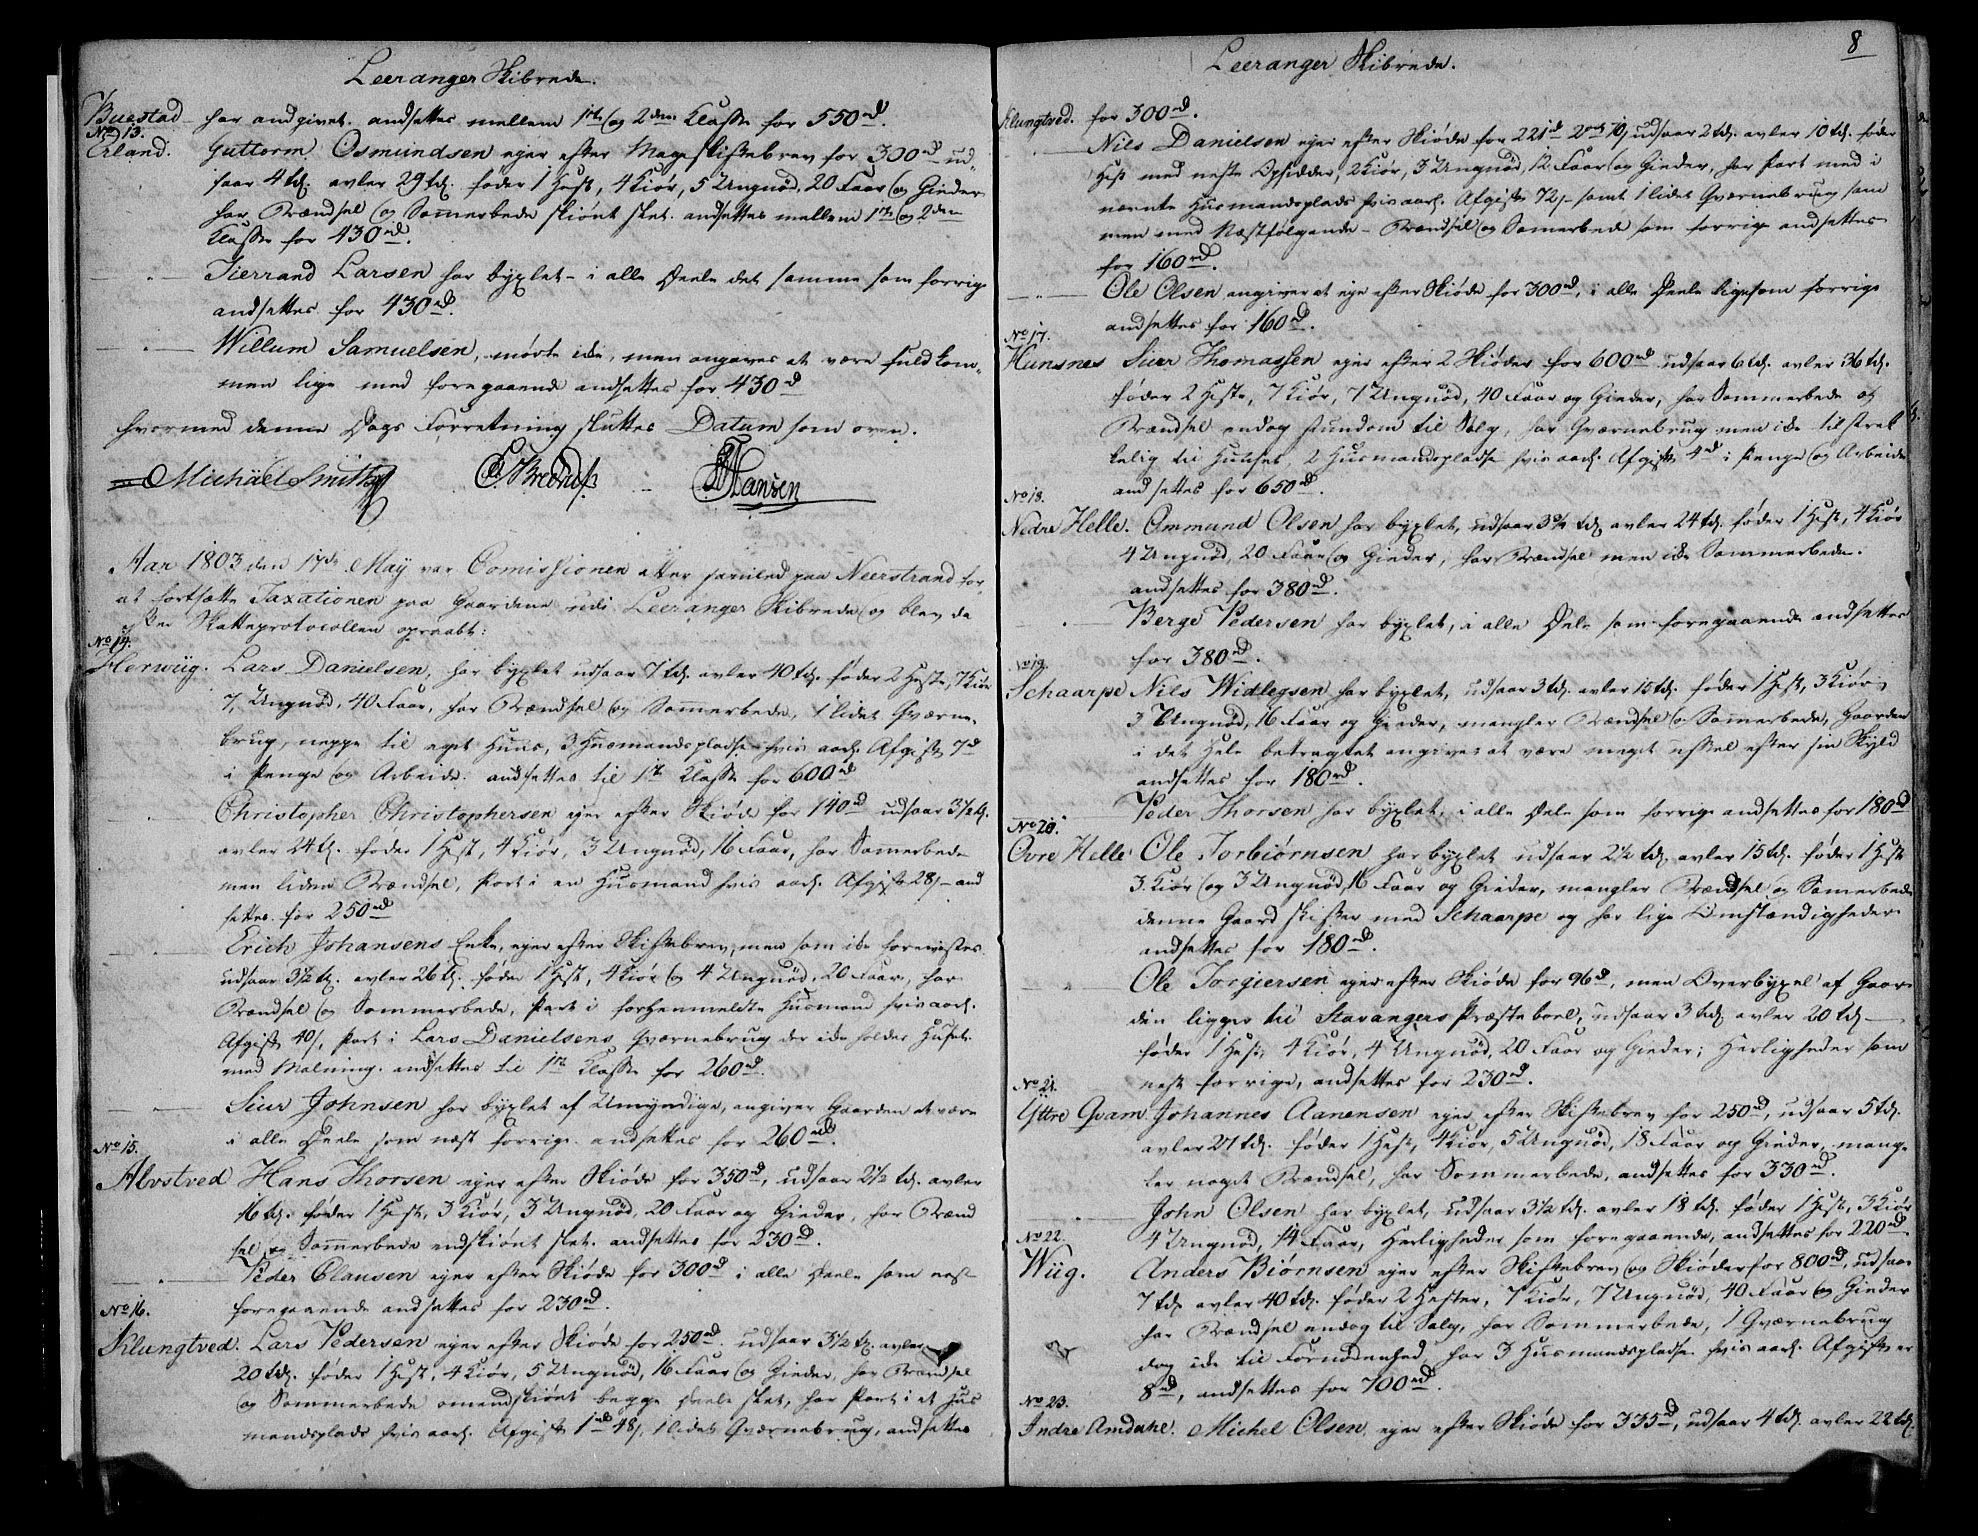 Leeranger Skibrede.
Buestad har andgivet. andsettes mellem 1ste og 2den Klasse for 550rd.
No 13.
Erland. Guttorm Osmundsen ejer efter Mageskiftebrev for 300rd ud-
saar 4 td. avler 29 td. føder 1 Hest, 4 Kiør, 5 Ungnød, 20 Faar og Gieder
har Brændsel og Sommerbede skiønt slet. andsettes mellem 1ste og 2den
Klasse for 430rd.
Tierrand Larsen har byxlet - i alle Deele det samme som forrige
andsettes for 430rd.
Willum Samuelsen, møtte ikke, men angaves at være fuldkom-
men lige med foregaaende andsettes for 430rd
hvormed denne Dags Forretning sluttes Datum som oven.
Michäel Smith Hansen
Aar 1803 den 17de May var Comissionen atter samled paa Neerstrand for
at fortsætte Taxationen paa Gaardene udi Leeranger Skibrede og blev da
efter Skatteprotocollen opraabt:
No 14.
Herwiig. Lars Danielsen, har byxlet udsaar 7 td. avler 40 td. føder 2 Heste, 7 Kiør
7, Ungnød, 40 Faar, har Brændsel og Sommerbede, 1 lidet Qværne-
brug, neppe til eget Huus, 3 Husmandspladse hvis aarl. Afgift 7rd
i Penge og Arbeide. andsettes til 1ste Klasse for 600rd
Christopher Christophersen ejer efter Skiøde for 140rd udsaar 3 1/2 td.
avler 24 td. føder 1 Hest, 4 Kiør, 3 Ungnød, 16 Faar, har Somerbede
men liden Brændsel, Part i en Husmand hvis aarl. Afgift 28s - and
settes for 250rd
Erich Johansens Enke, ejer efter Skiftebrev, men som ikke forevistes
udsaar 3 1/2 td. avler 26 td. føder 1 Hest, 4 Kiør og 4 Ungnød, 20 Faar, har
Brændsel og Sommerbede, Part i forhenmeldte Husmand hvis aarl.
Afgift 40s, Part i Lars Danielsens Qværnebrug der ikke holder Huset
med Malning. andsettes til 1ste Klasse for 260rd.
Siur Johnsen har byxlet af Umyndige, angiver Gaarden at være
i alle Deele som næst forrige. andsettes for 260rd.
No 15.
Alvstved Hans Thorsen ejer efter Skiøde for 350rd, udsaar 2 1/2 td. avler
16 td. føder 1 Hest, 3 Kiør, 3 Ungnød, 20 Faar og Gieder, har Brænd
sel og Sommerbede endskiønt slet. andsettes for 230rd.
Peder Clausen ejer efter Skiøde for 300rd i alle Deele som nest
foregaaende andsettes for 230rd.
No 16.
Klungtved. Lars Pedersen ejer efter Skiøde for 250rd. udsaar 3 1/2 td. avler
20 td. føder 1 Hest, 4 Kiør, 5 Ungnød, 16 Faar og Gieder, har Brændsel
og Sommerbede omendskiønt begge Deele slet, har Part i et Hus
mandsplads hvis aarl. Afgift 1rd 48s, 1 lidet Qværnebrug, andsettes
8
Leeranger Skibrede.
Klungtved. for 300rd.
Nils Danielsen ejer efter Skiøde for 221rd 2 ort 10s, udsaar 2 td. avler 10 td. føder
Hest med neste Opsidder, 2 Kiør, 3 Ungnød, 12 Faar og Gieder, har Part med i
nævnte Husmandsplads hvis aarl. Afgift 72s samt 1 lidet Qværnebrug sam
men med Næstfølgende - Brændsel og Somerbede som forrige andsettes
for 160rd.
Ole Olsen angiver at eje efter Skiøde for 300rd, i alle Deele ligesom forrige
andsettes for 160rd.
No 17.
Hunsnes Siur Thomassen ejer efter 2 Skiøder for 600rd udsaar 6 td. avler 36 td.
føder 2 Heste, 7 Kiør, 7 Ungnød, 40 Faar og Gieder, har Sommerbede og
Brændsel endog stundom til Salg, har Qværnebrug men ikke tilstræk
kelig til Huuset, 2 Husmandspladse hvis aarl. Afgift 4rd i Penge og Arbeide
andsettes for 650rd.
No 18.
Nedre Helle. Ommund Olsen har byxlet, udsaar 3 3/4 td. avler 24 td. føder 1 Hest, 4 Kiør
4 Ungnød, 20 Faar og Gieder, har Brændsel men ikke Sommerbede.
andsettes for 380rd.
Berge Pedersen har byxlet, i alle Deele som foregaaende andsettes
for 380rd.
No 19.
Schaarpe Nils Widlegsen har byxlet, udsaar 3 td. avler 15 td. føder 1 Hest, 3 Kiør
3 Ungnød, 16 Faar og Gieder, mangler Brændsel og Sommerbede, Gaarden
i det Hele betragtet angives at være meget ussel efter sin Skyld
andsettes for 180rd.
Peder Thorsen har byxlet, i alle Deele som forrige andsettes for 180rd
No 20.
Ovre Helle Ole Torbiørnsen har byxlet udsaar 2 1/2 td. avler 15 td. føder 1 Hest
3 Kiør og 3 Ungnød, 16 Faar og Gieder, mangler Brændsel og Somerbede
denne Gaard skifter med Schaarpe og har lige Omstændigheder
andsettes for 180rd.
Ole Torgiersen ejer efter Skiøde for 96rd, men Overbyxel af Gaar
den ligger til Stavangers Præsteboel, udsaar 3 td. avler 20 td. -
føder 1 Hest 4 Kiør, 4 Ungnød, 20 Faar og Gieder; Herligheder som
nest forrige, andsettes for 230rd.
No 21.
Yttre Qvam. Johannes Aanensen ejer efter Skiftebrev for 250rd, udsaar 5 td.
avler 27 td. føder 1 Hest, 4 Kiør, 5 Ungnød, 18 Faar og Gieder, mang-
ler noget Brændsel, har Sommerbede, andsettes for 330rd.
John Olsen har byxlet, udsaar 3 1/2 td. avler 18 td. føder 1 Hest, 3 Kiør
4 Ungnød, 14 Faar, Herligheder som foregaaende, andsettes for 220rd
No 22.
Wiig. Anders Biørnsen ejer efter Skiftebrev og Skiøder for 800rd, udsaar
7 td. avler 40 td. føder 2 Hester, 7 Kiør, 7 Ungnød, 40 Faar og Gieder
har Brændsel endog til Salg, har Sommerbede, 1 Qværnebrug
dog ikke til Fornødenhed, har 3 Husmandspladse hvis aarl. Afgift er
8rd, andsettes for 700rd.
No 23.
Indre Amdahl. Michel Olsen ejer efter Skiøde for 335rd, udsaar 4 td. avler 22 td.